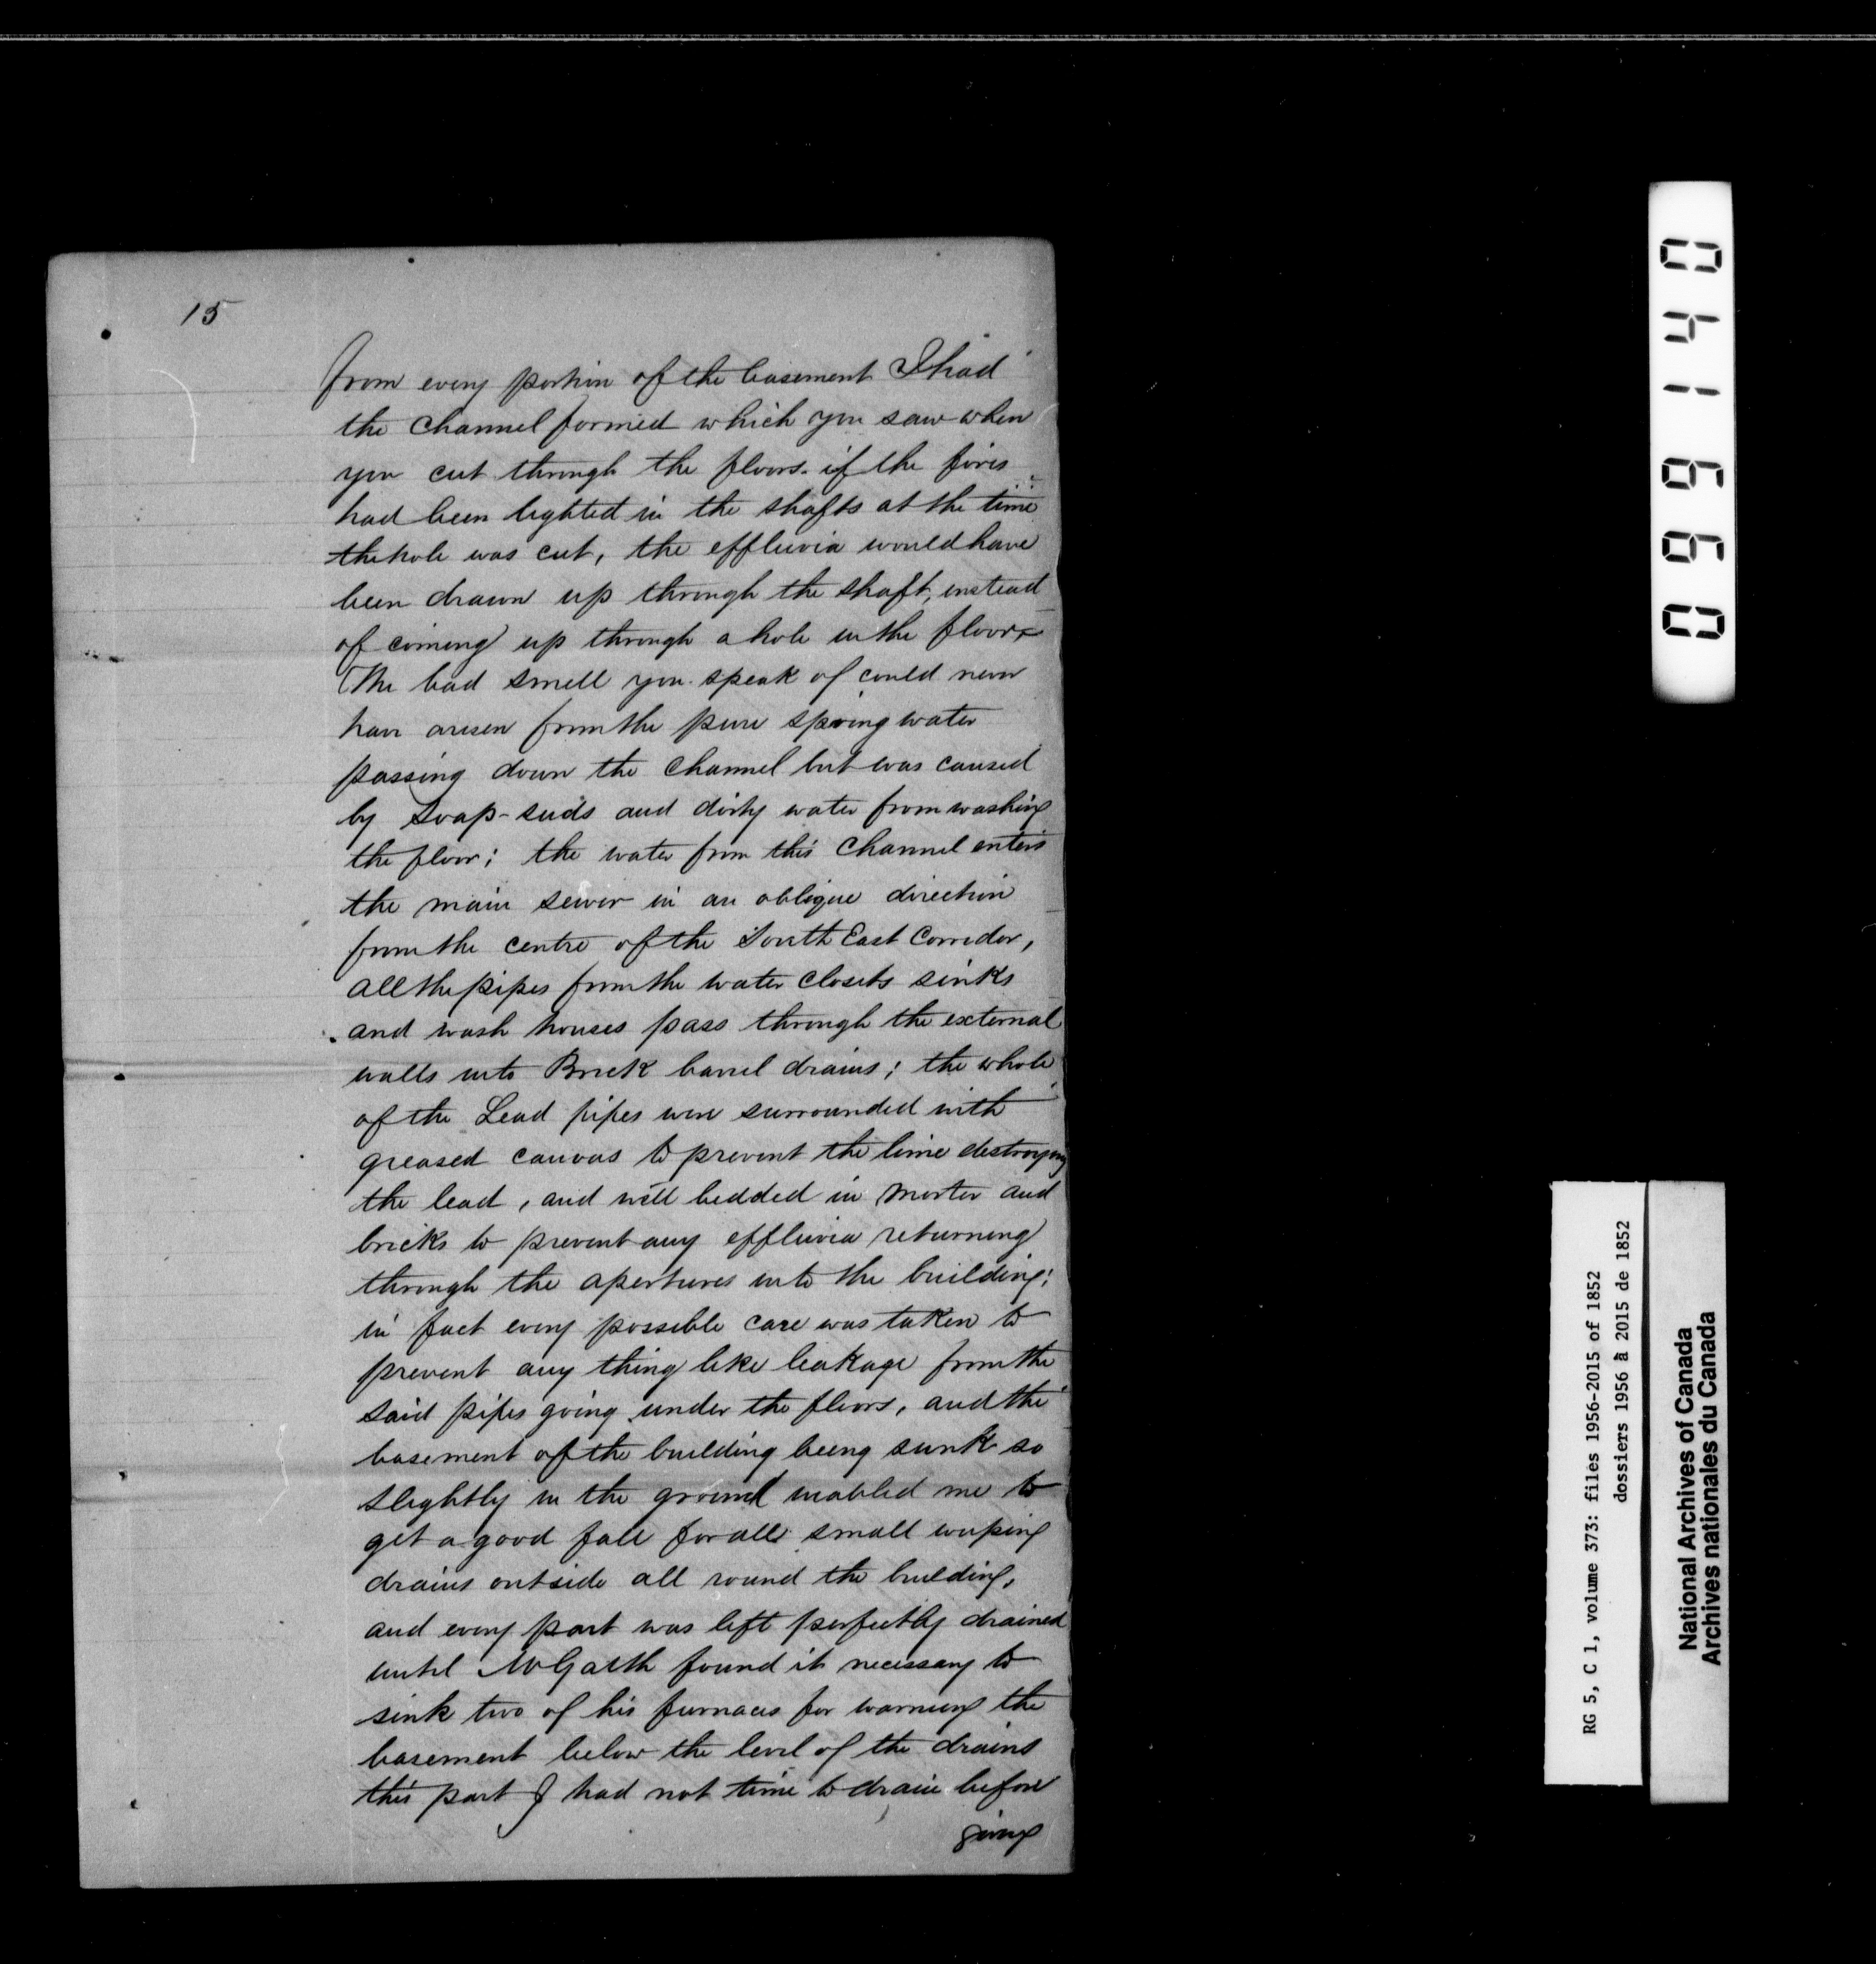 15
from every portion of the basement I had
the Channel formed which you saw when
you cut through the floors. if the fires
had been lighted in the shafts at the time
the hole was cut, the effluvia would have
been drawn up through the shaft, instead
of coming up through a hole in the floor.
The bad smell you speak of could never
have arisen from the pure spring water
passing down the Channel but was caused
by Soap-suds and dirty water from washing
the floor; the water from this Channel enters
the main sewer in an oblique direction
from the centre of the South East Corridor,
all the pipes from the water closets sinks
and wash houses pass through the external
walls into Brick barrel drains; the whole
of the Lead pipes were surrounded with
greased canvas to prevent the lime destroying
the lead, and well bedded in Morter and
bricks to prevent any effluvia returning
through the apertures into the building;
in fact every possible care was taken to
prevent any thing like leakage from the
said pipes going under the floors, and the
basement of the building being sunk so
slightly in the ground enabled me to
get a good fall for all small weeping
drains outside all round the building,
and every part was left perfectly drained
until Garth found it necessary to
sink two of his furnaces for warming the
basement below the level of the drains
this part I had not time to drain before
giving
099140
RG 5, C 1, volume 373: files 1956-2015 of 1852
dossiers 1956 à 2015 de 1852
National Archives of Canada
Archives nationales du Canada